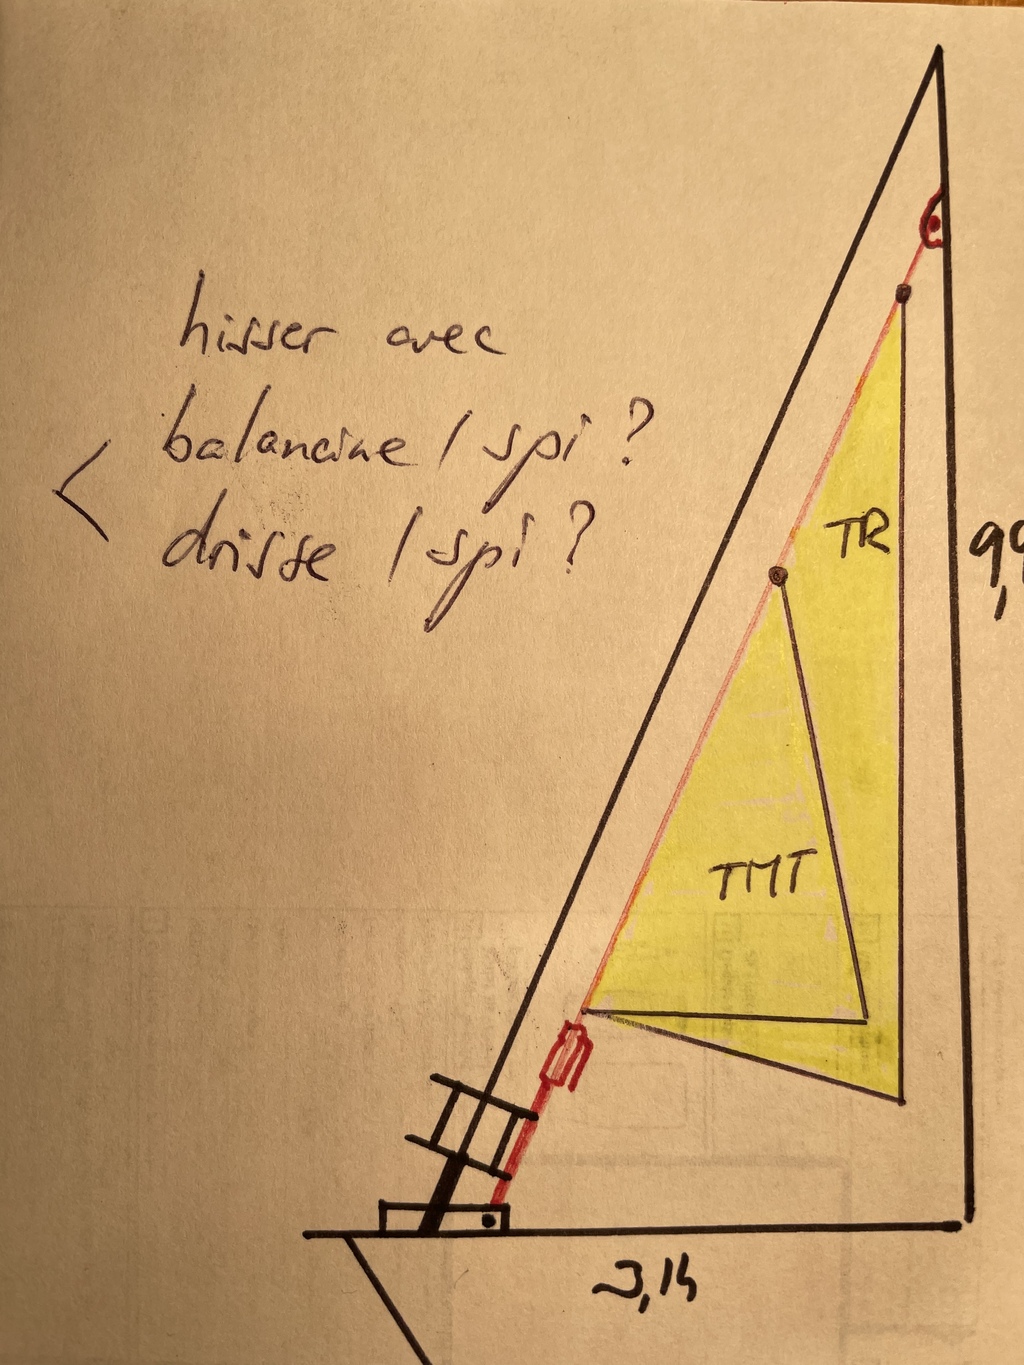 hisser avec
balancine / spi ?
drisse / spi ?
TR
9,9
TMT
3,14